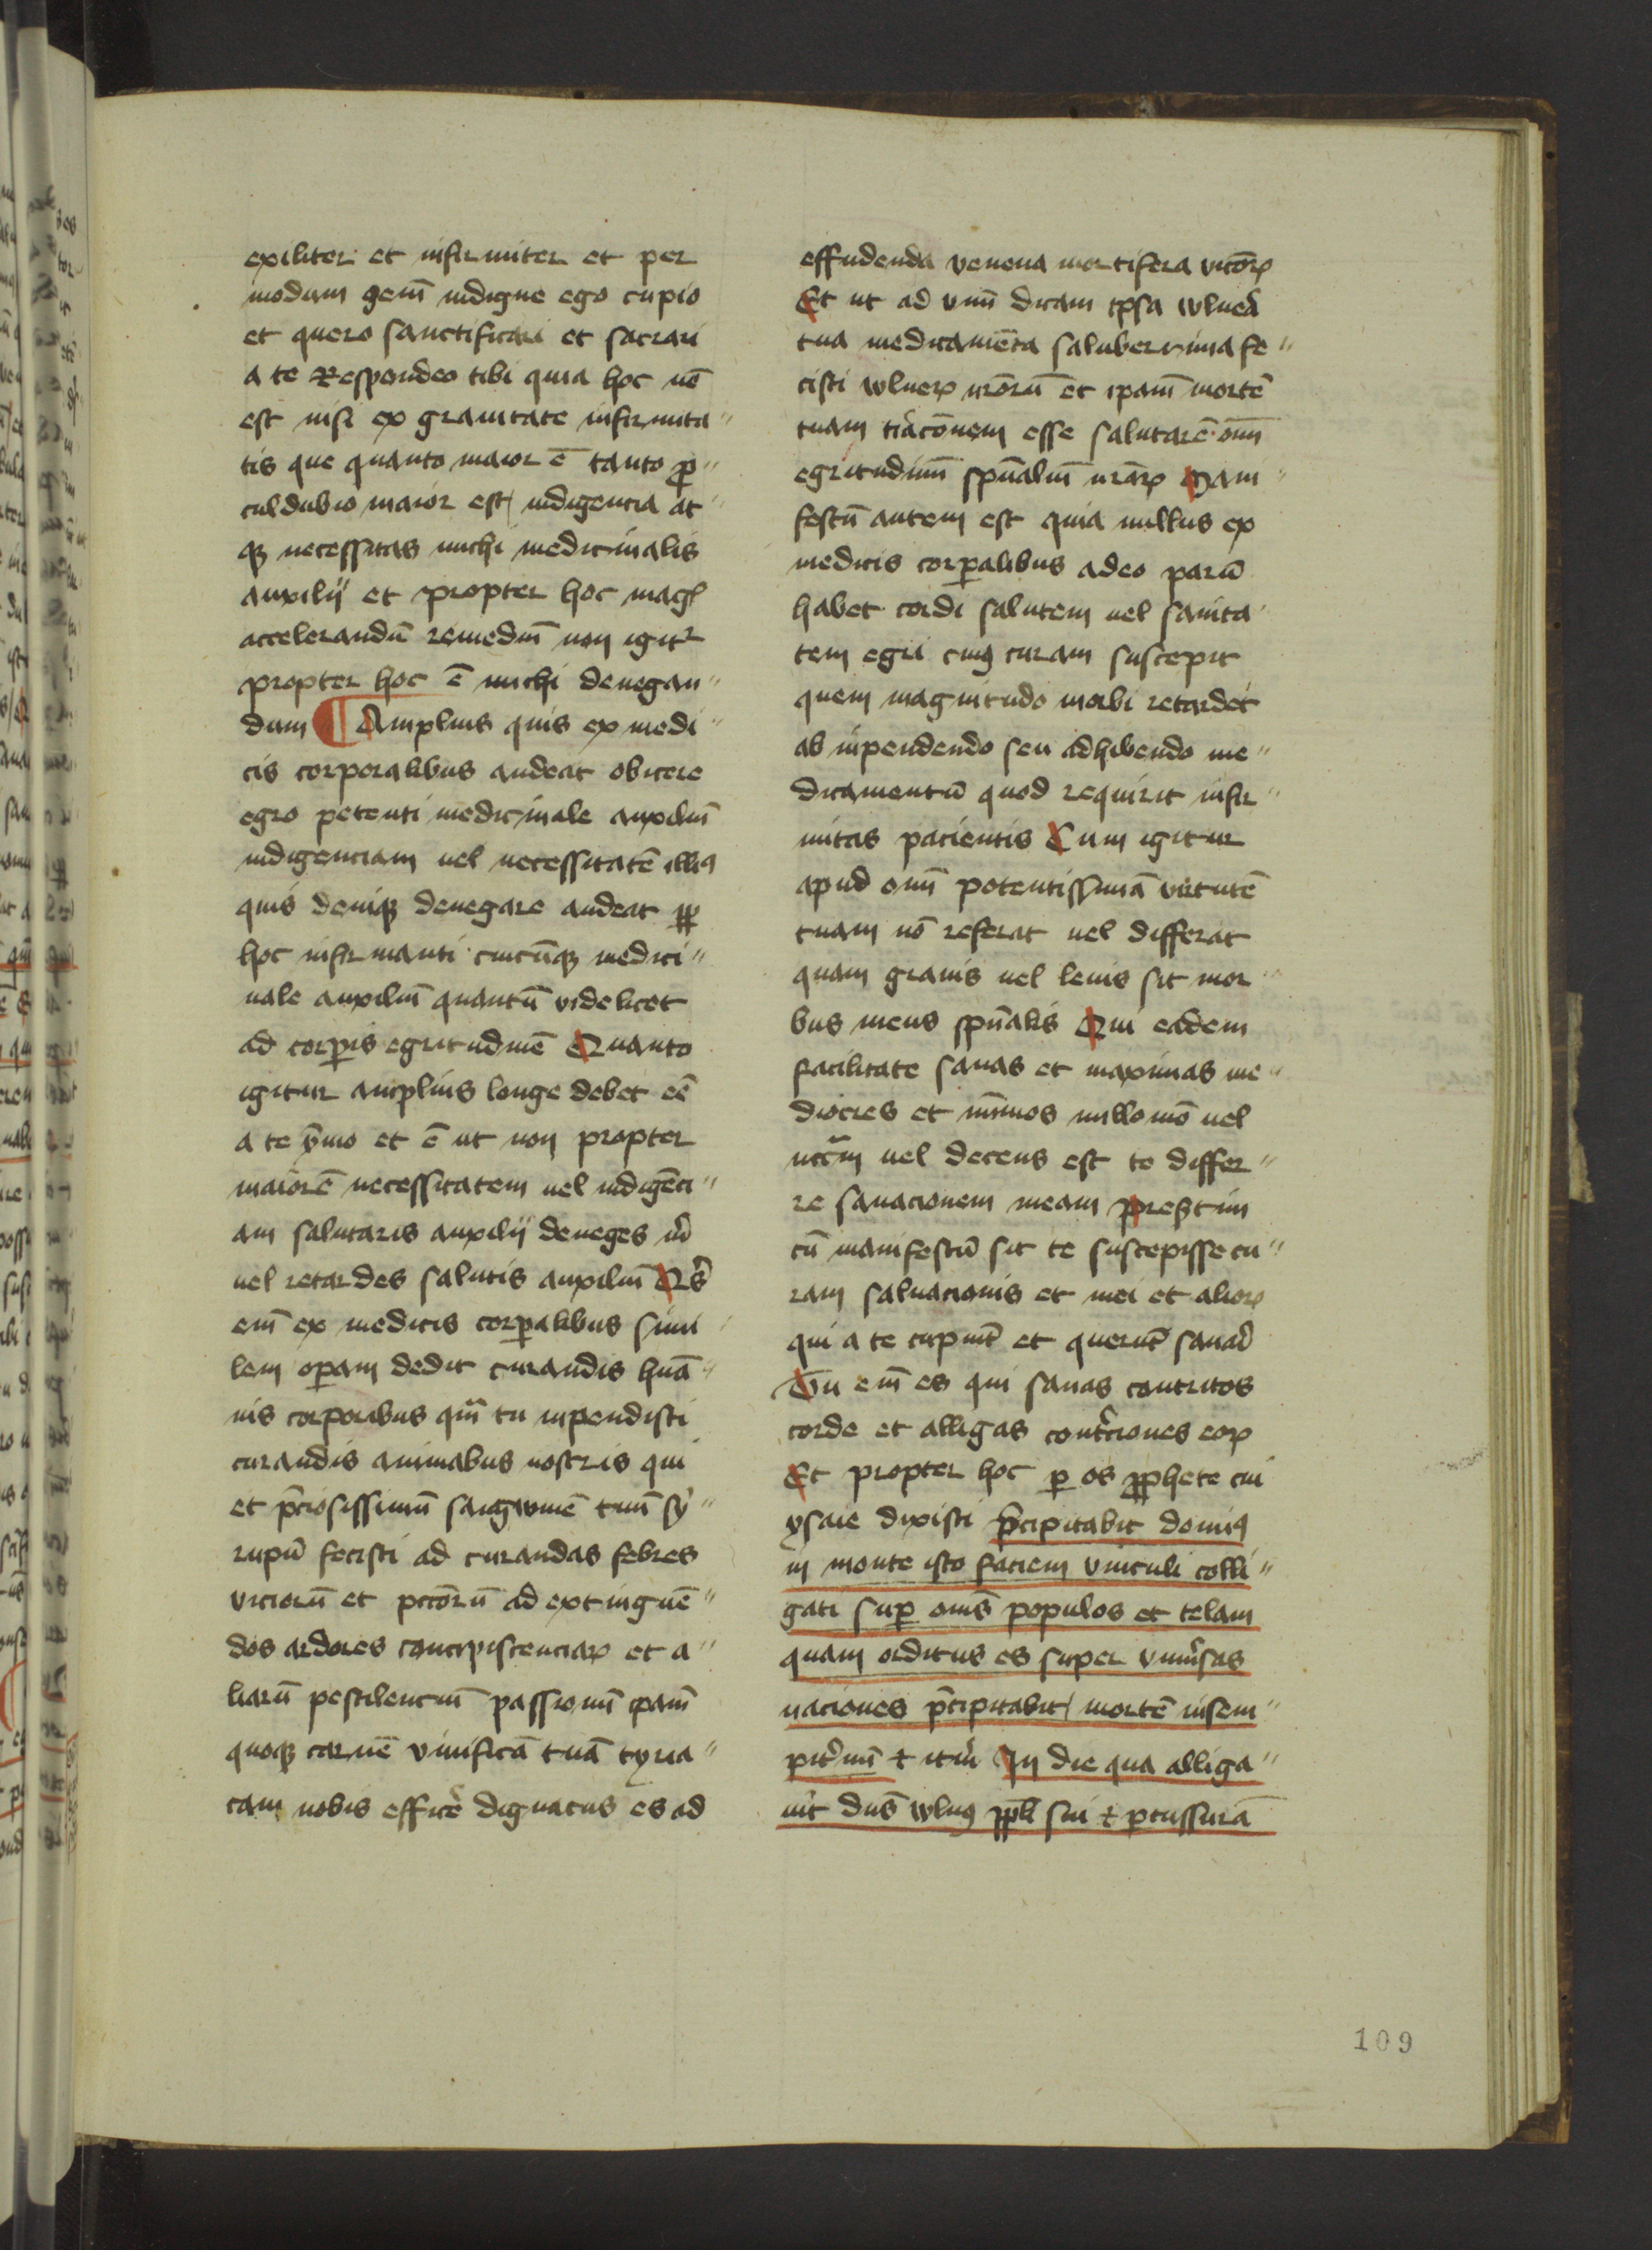 exiliter et infirmiter et per
modum gem̄ indigne ego cupio
et quero sanctificari et sacrari
a te Respondeo tibi quia hoc nō
est nisi ex grauitate infirmita〃
tis que quanto maior ē tanto ꝓ〃
culdubio maior est indigencia at〃
qꝫ necessitas michi medicinalis
auxilij et propter hoc magꝭ
accelerandū remediū non igitᷣ
propter hoc ē michi denegan〃
dum ¶ Amplius quis ex medi〃
cis corporalibus audeat obicere
egro petenti medicinale auxiliū
indigenciam uel necessitatē illiꝯ
quis deniqꝫ denegare audeat ꝓꝑ
hoc infirmanti cuicūqꝫ medici〃
nale auxiliū quantū videlicet
ad corꝑis egritudinē Quanto
igitur amplius longe debet eē
a te ꝟmo et ē ut non propter
maiorē necessitatem uel indigēci〃
am salutaris auxilij deneges m̄
uel retardes salutis auxiliū Qͥs
em̄ ex medicis corꝑalibus simi
lem oꝑam dedit curandis hūa〃
nis corporibus qm̄ tu inpendisti
curandis animabus nostris qui
et p̄ciosissimū sangwinē tuū sy〃
rupū fecisti ad curandas febres
viciorū et pctōrū ad extinguē〃
dos ardores concupiscenciaꝝ et a〃
liarū pestilenciū passionū ipam̄
quoqꝫ carnē viuificā tuā tyria〃
cam nobis efficēr dignatus es ad
effundenda venena mortifera vicōꝝ
Et ut ad vnū dicam ipsa wlnerā
tua medicamēta saluberrima fe〃
cisti wlneꝝ nr̄orū et ipam̄ mortē
tuam tiriacōnem esse salutarē om̄
egritudinū spūaliū nr̄aꝝ Mani〃
festū autem est quia nullus ex
medicis corꝑalibus adeo parū
habet cordi salutem uel sanita〃
tem egri cuiꝯ curam suscepit
quem magnitudo morbi retardet
ab inpendendo seu adhibendo me〃
dicamentū quod requirit infir〃
mitas pacientis Cum igitur
apud om̄ potentissimā virtutē
tuam nō referat uel differat
quam grauis uel leuis sit mor〃
bus meus spūalis Qui eadem
facilitate sanas et maximas me〃
diocres et minimos nullomō uel
utcm̄ uel decens est te differ〃
re sanacionem meam presertim
cū manifestū sit te suscepisse cu〃
ram saluacionis et mei et alioꝝ
qui a te cupiūt et querūt sanari
Tu em̄ es qui sanas contritos
corde et alligas contᷓciones eoꝝ
Et propter hoc ꝑ os ꝓphete tui
ysaie dixisti p̄cipitabit dominꝯ
in monte isto faciem vinculi colli〃
gati suꝑ om̄s populos et telam
quam orditus es super vniuᷓsas
naciones p̄cipitabit mortē insem〃
pitᷓnū ⁊ itᷓm In die qua alliga〃
uit dn̄s wlnꝯ ppl̄i sui ⁊ ꝑcussurā
109